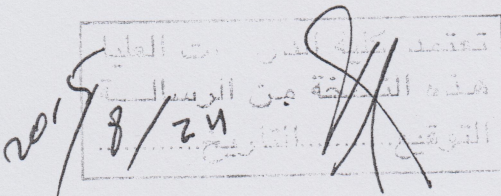 تعتمد كلية الدراسات العليا
هذه النسخة من الرسالــة
التوقيع............التاريخ............
24/8/2015